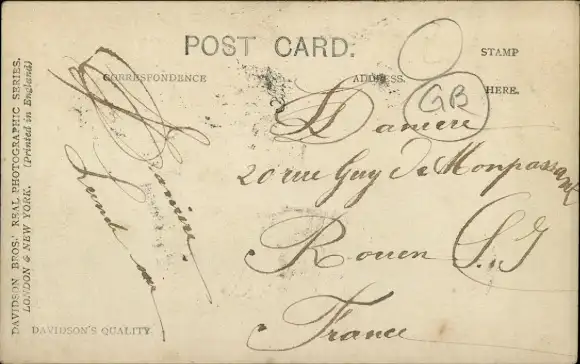 POST CARD.
CORRESPONDENCE
ADDRESS.
STAMP
HERE.
GB
Daniere
20 rue Guy de Monpassant
Rouen S.I
France
DAVIDSON BROS.' REAL PHOTOGRAPHIC SERIES.
LONDON & NEW YORK. (Printed in England)
DAVIDSON'S QUALITY